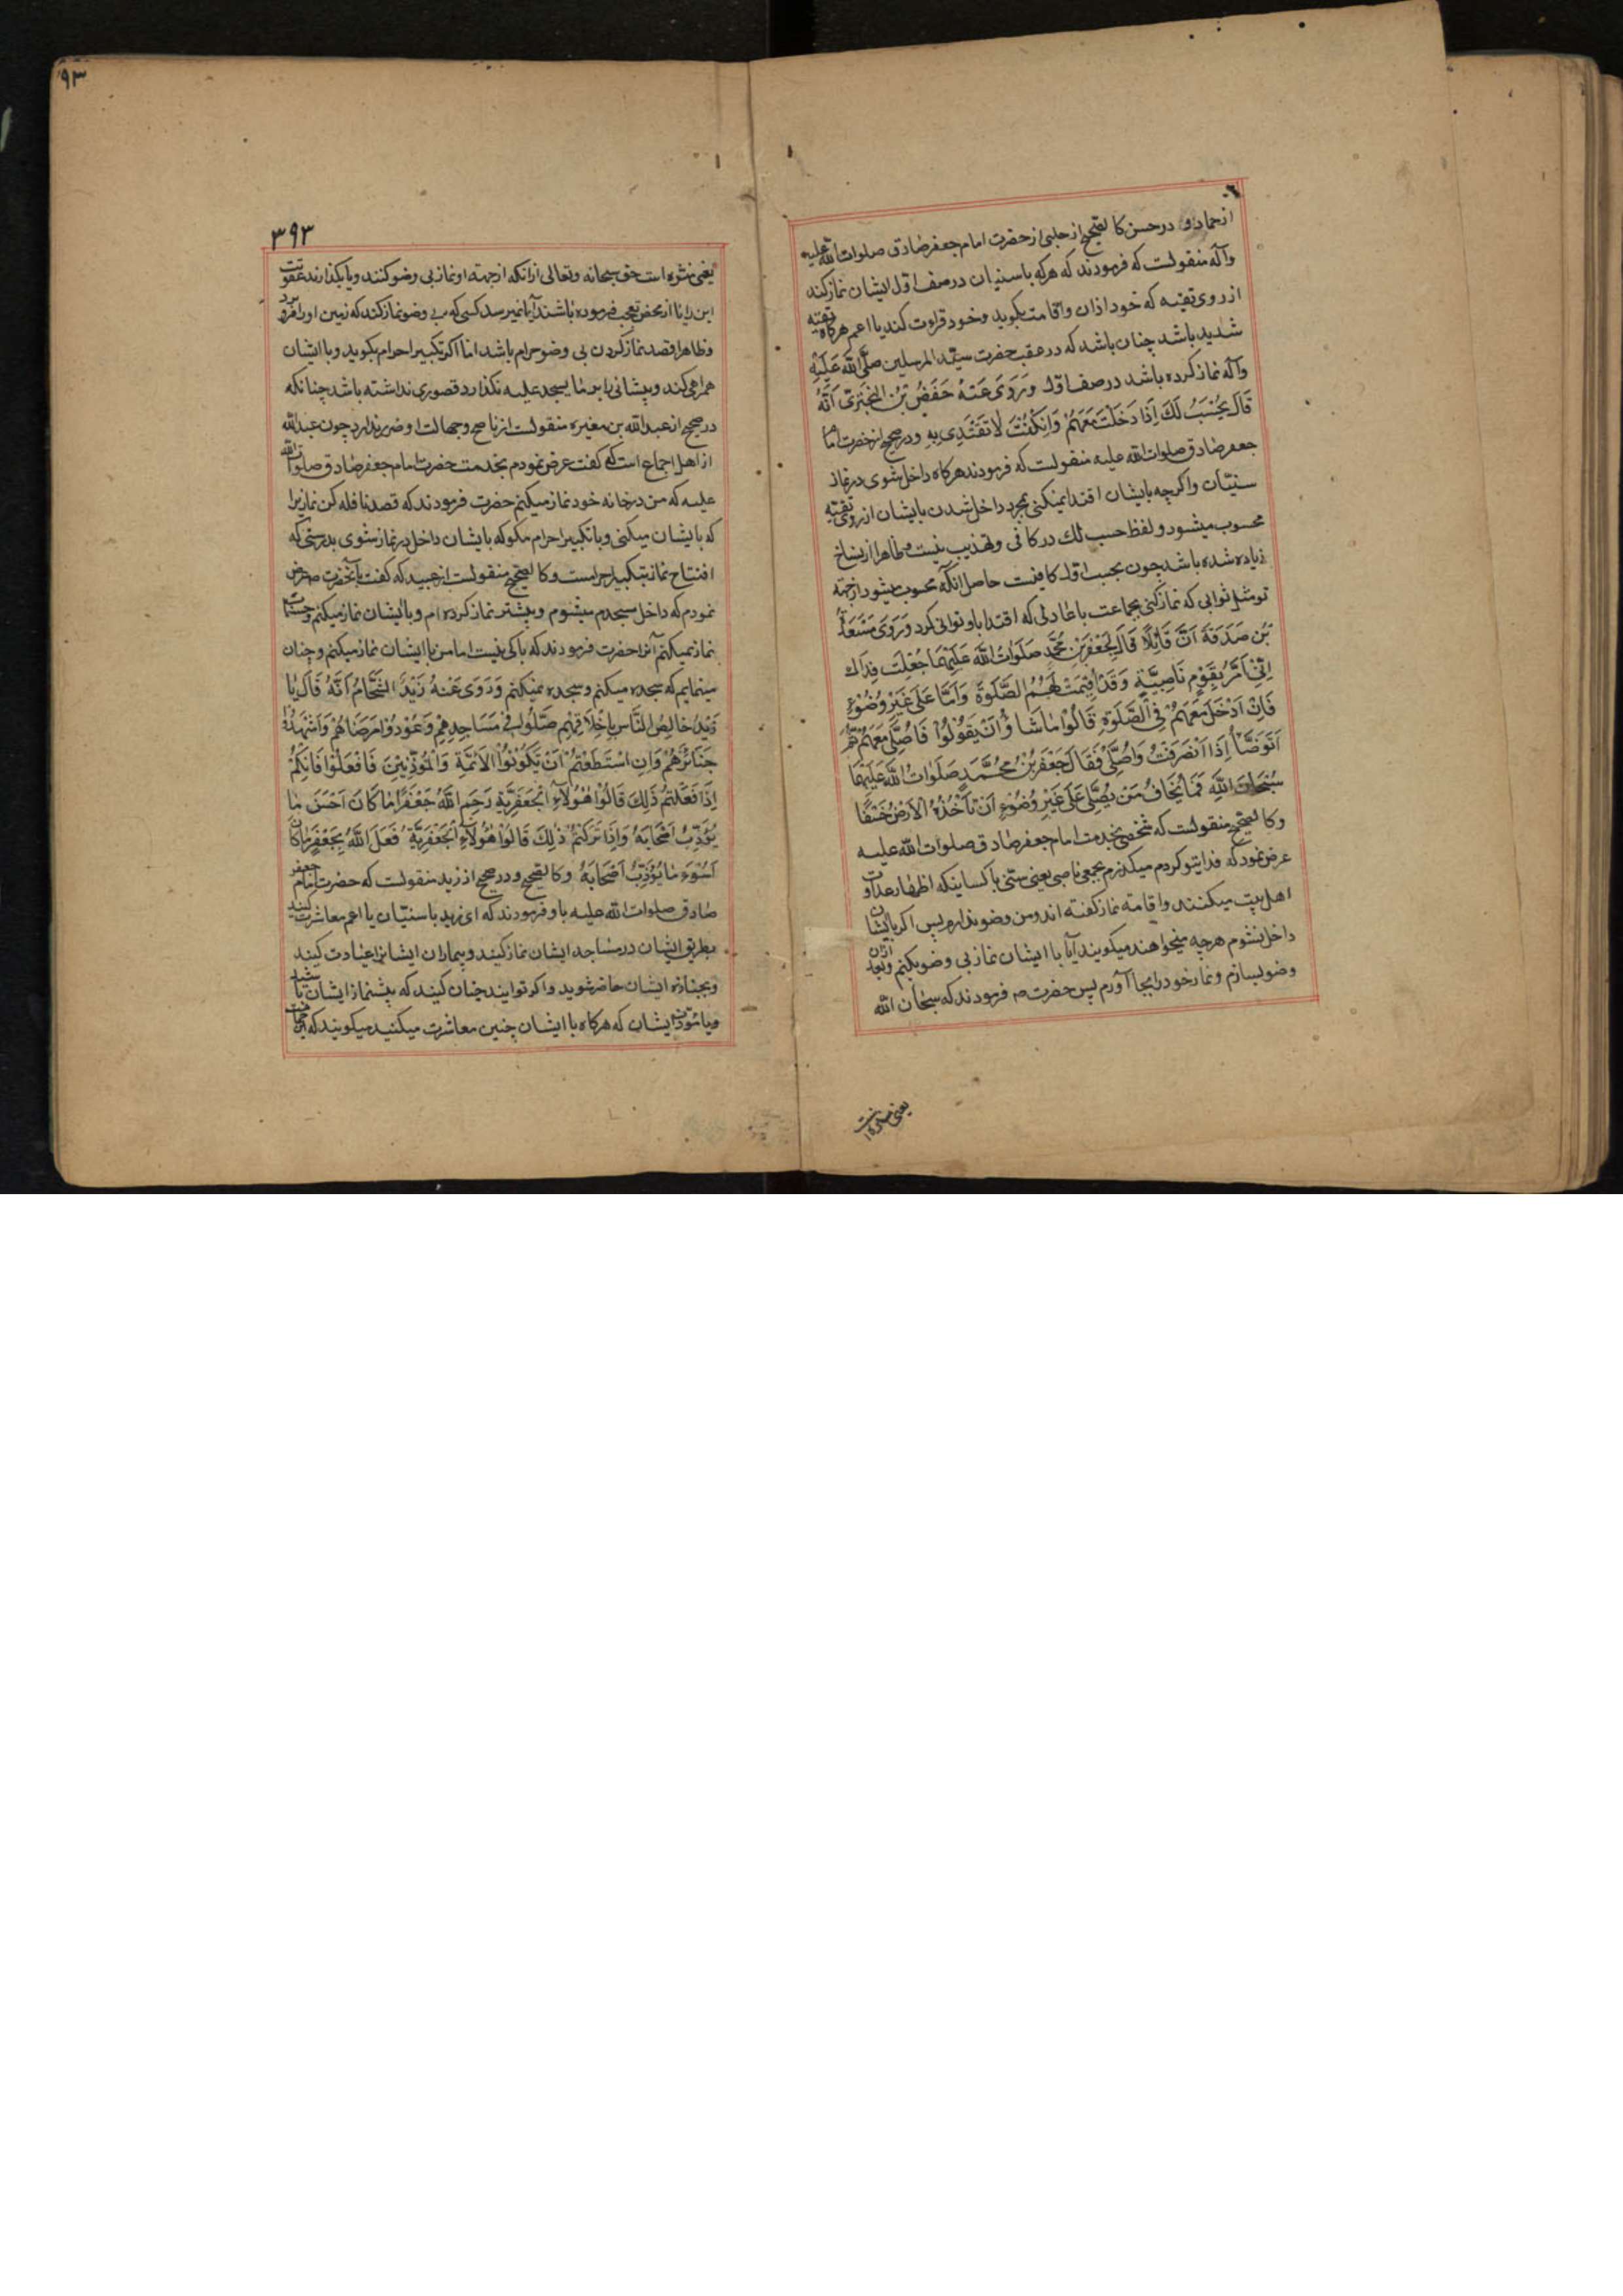 از حماد و در حسن كالصحيح از حلبی از حضرت امام جعفر صادق صلوات الله عليه
وآله منقولست که فرمودند که هر که با سنیان در صف اول ایشان نماز کند
از روی تقیه که خود اذان واقامت بکوید وخود قراءت کند یا اعم هرکاه تقیه
شدید باشد چنان باشد که در عقب حضرت سید المرسلین صَلَّی اللهُ عَلَیْهِ
وآله نماز کرده باشد در صف اول وَرَوَی عَنهُ حَفْصُ بْنُ الْبَخْتَرِیِّ اَنَّهُ
قَالَ یُحْسَبُ لَكَ اِذَا دَخَلْتَ مَعَهُمْ وَاِنْ كُنْتَ لَا تَقْتَدِی بِهِ ودر صحیح از حضرت امام
جعفر صادق صلوات الله علیه منقولست که فرمودند هرکاه داخل شوی در نماز
سنّیان واکرچه بایشان اقتدا نمیکنی بمجرد داخل شدن بایشان از روی تقیه
محسوب میشود ولفظ حسب لك در کافی وتهذیب نیست وظاهرا از نساخ
زیاده شده باشد چون بحسب اول کافیست حاصل انکه محسوب میشود از جهة
تو مثل ثوابی که نماز کنی بجماعت با عادلی که اقتدا باو توانی کرد وَرَوَی مَسْعَدَةُ
بْنُ صَدَقَةَ اَنَّ قَائِلًا قَالَ لِجَعْفَرِ بْنِ مُحَمَّدٍ صَلَوَاتُ اللهِ عَلَیْهِمَا جُعِلْتُ فِدَاكَ
اِنِّی اَمُرُّ بِقَوْمٍ نَاصِبِیَّةٍ وَقَدْ اُقِیمَتْ لَهُمُ الصَّلٰوةُ وَاَنَا عَلَی غَیْرِ وُضُوْءٍ
فَاِنْ اَدْخُلْ مَعَهُمْ فِی الصَّلٰوةِ قَالُوْا مَا شَاؤُا اَنْ یَقُوْلُوْا فَاُصَلِّی مَعَهُمْ ثُمَّ
اَتَوَضَّأُ اِذَا انْصَرَفْتُ وَاُصَلِّی فَقَالَ جَعْفَرُ بْنُ مُحَمَّدٍ صَلَوَاتُ اللهِ عَلَیْهِمَا
سُبْحَانَ اللهِ فَمَا یَخَافُ مَنْ یُصَلِّی عَلَی غَیْرِ وُضُوْءٍ اَنْ تَأْخُذَهُ الْاَرْضُ خَسْفًا
وکالصحیح منقولست که شخصی بخدمت امام جعفر صادق صلوات الله علیه
عرض نمود که فدایتو کردم میکذرم بجمعی ناصبی یعنی سنّی یا کسانیکه اظهار عداوت
اهل بیت میکنند واقامه نماز کفته اند ومن وضو ندارم پس اکر بایشان
داخل نشوم هرچه میخواهند میکویند آیا با ایشان نماز بی وضو بکنم وبعد ازان
وضو بسازم ونماز خود را بجا آورم پس حضرت ص فرمودند که سبحان الله
یعنی منزه است
۹۳
۳۹۳
یعنی منزه است حق سبحانه وتعالی ازانکه از جهة او نماز بی وضو کنند ویا بکذارند عقوبت
این را یا از محض تعجب فرموده باشند آیا نمیرسد کسی که بی وضو نماز کند که زمین او را فرو برد
وظاهرا قصد نماز کردن بی وضو حرام باشد اما اکر تکبیر احرام بکوید وبا ایشان
همراهی کند وپیشانی را بر ما یسجد علیه نکذارد قصوری نداشته باشد چنانکه
در صحیح از عبد الله بن مغیره منقولست از ناصح وجهالت او ضرر ندارد چون عبد الله
از اهل اجماع است که کفت عرض نمودم بخدمت حضرت امام جعفر صادق صلوات الله
علیه که من در خانه خود نماز میکنم حضرت فرمودند که قصد نافله کن نمازیرا
که بایشان میکنی وبا تکبیر احرام مکو که بایشان داخل در نماز شوی بدرستی که
افتتاح نماز بتکبیر احرامست وکالصحیح منقولست از عبید که کفت بآنحضرت ص عرض
نمودم که داخل مسجدم میشوم وپیشتر نماز کرده ام وبا ایشان نماز میکنم وحساب
نماز نمیکنم آنرا حضرت فرمودند که باکی نیست اما من با ایشان نماز میکنم وچنان
مینمایم که سجده میکنم وسجده نمیکنم وَرَوَی عَنهُ زَیْدٌ الشَّحَّامُ اَنَّهُ قَالَ یَا
زَیْدُ خَالِصُ النَّاسِ بِاَخْلَاقِهِمْ صَلُّوا فِی مَسَاجِدِهِمْ وَعُوْدُوْا مَرْضَاهُمْ وَاشْهَدُوْا
جَنَائِزَهُمْ وَاِنِ اسْتَطَعْتُمْ اَنْ تَكُوْنُوْا الْاَئِمَّةَ وَالْمُؤَذِّنِیْنَ فَافْعَلُوْا فَاِنَّكُمْ
اِذَا فَعَلْتُمْ ذَلِكَ قَالُوْا هٰؤُلَاءِ الْجَعْفَرِیَّةُ رَحِمَ اللهُ جَعْفَرًا مَا كَانَ اَحْسَنَ مَا
یُؤَدِّبُ اَصْحَابَهُ وَاِذَا تَرَكْتُمْ ذٰلِكَ قَالُوْا هٰؤُلَاءِ الْجَعْفَرِیَّةُ فَعَلَ اللهُ بِجَعْفَرٍ مَا كَانَ
اَسْوَءَ مَا یُؤَدِّبُ اَصْحَابَهُ وکالصحیح ودر صحیح از زید منقولست که حضرت امام جعفر
صادق صلوات الله علیه باو فرمودند که ای زید با سنّیان یا اعم معاشرت کنید
بطریق ایشان در مساجد ایشان نماز کنید وبیماران ایشانرا عیادت کنید
وبجنازه ایشان حاضر شوید واکر توانید چنان کنید که پیشنماز ایشان باشید
ویا مؤذن ایشان که هرکاه با ایشان چنین معاشرت میکنید میکویند که این جماعت